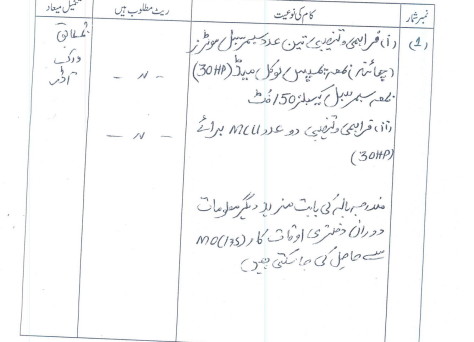 نمبر شمار کام کی نوعیت ریٹ مطلوب ہیں تکمیل میعاد
(1) (i) فراہمی و تنصیب تین عدد سبمرسبل موٹرز - 〃 - بمطابق ورک آڈر
(چائنہ) بمعہ پمپس لوکل میڈ (30HP)
بمعہ سبمرسبل کیبلز 150 فٹ
(ii) فراہمی و تنصیب دو عدد MCU برائے - 〃 -
(30HP)
مندرجہ بالا کی بابت مزید دیگر معلومات
دوران دفتری اوقات کار MO(I&S)
سے حاصل کی جا سکتی ہیں